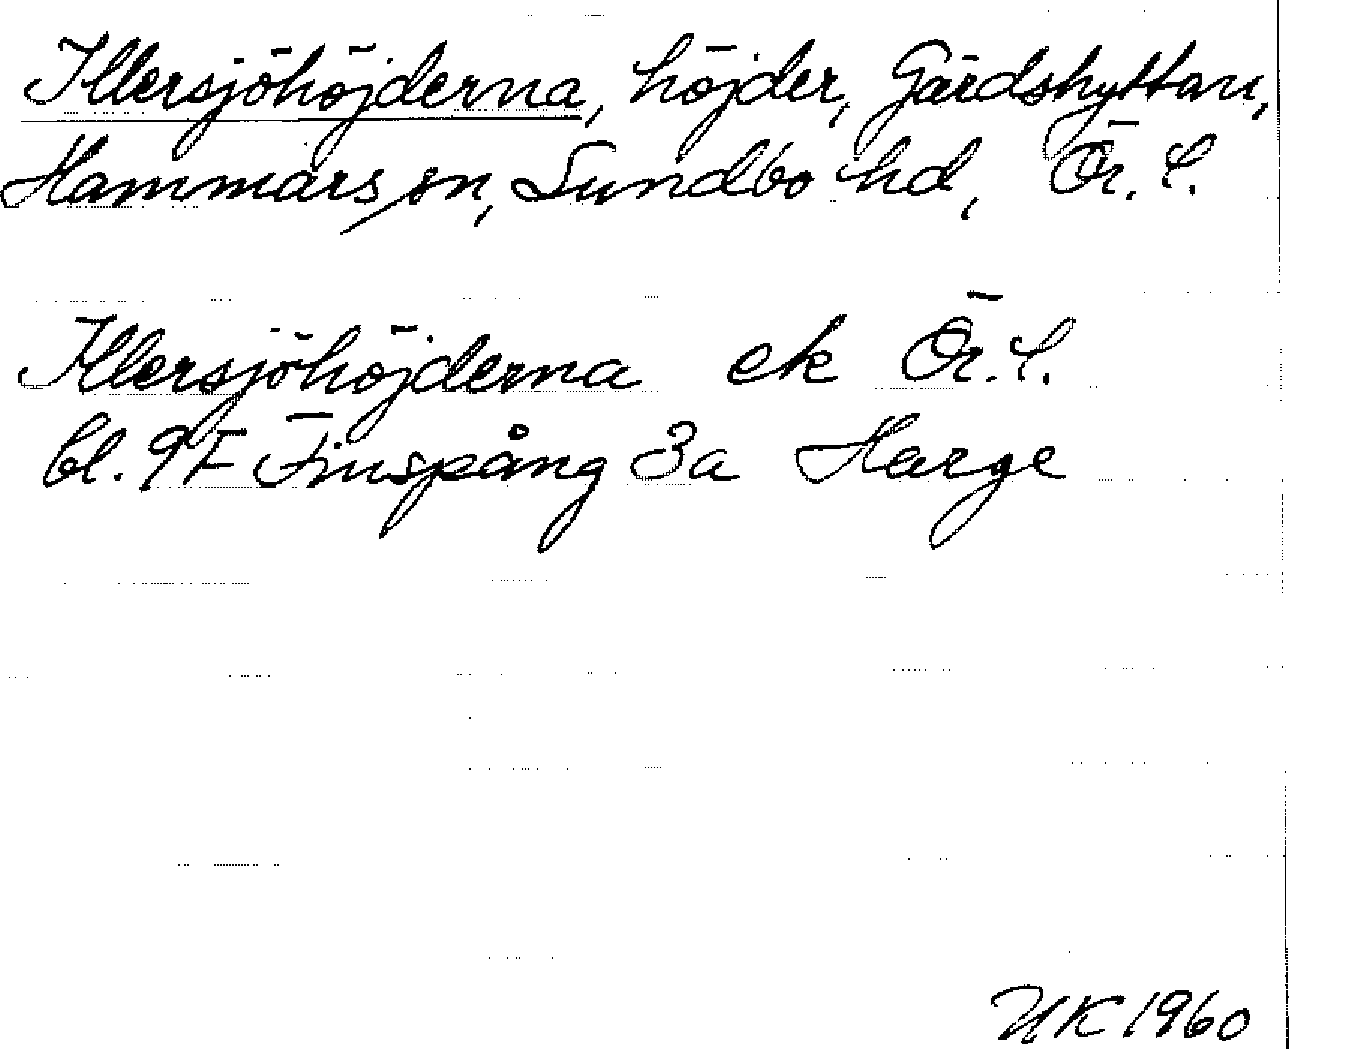 Illersjöhöjderna, höjder, Gårdshyttan,
Hammars sn, Sundbo hd, Ör. l.
Illersjöhöjderna ek Ör. l.
bl. 9F Finspång 3a Harge
UK 1960